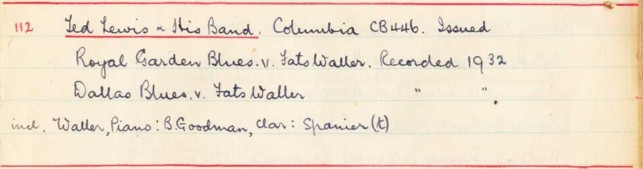 112 Ted Lewis & His Band. Columbia CB446. Issued
Royal Garden Blues. v. Fats Waller. Recorded 1932
Dallas Blues. v. Fats Waller " ".
incl. Waller, Piano: B. Goodman, clar: Spanier (t)